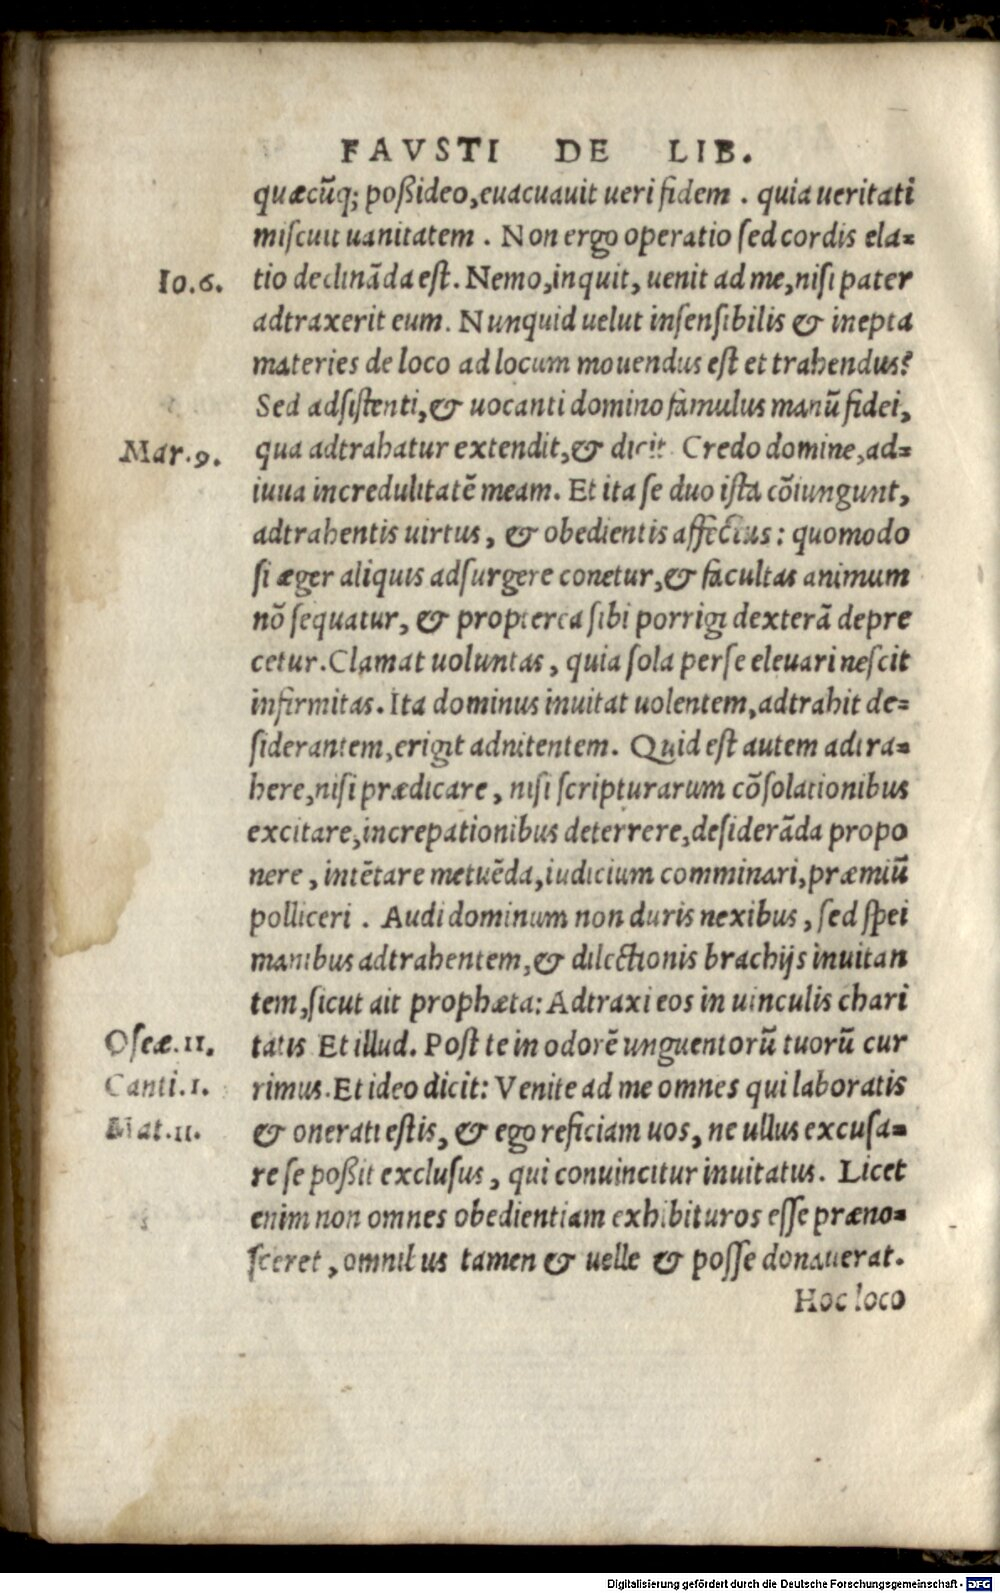 FAVSTI DE LIB.
quæcũq; poßideo, euacuauit ueri fidem . quia ueritati
miſcuit uanitatem . Non ergo operatio ſed cordis ela=
Io.6. tio declinãda eſt. Nemo, inquit, uenit ad me, niſi pater
adtraxerit eum. Nunquid uelut inſenſibilis & inepta
materies de loco ad locum mouendus eſt et trahendus?
Sed adſiſtenti, & uocanti domino famulus manũ fidei,
Mar.9. qua adtrahatur extendit, & dicit. Credo domine, ad=
iuua incredulitatẽ meam. Et ita ſe duo iſta cõiungunt,
adtrahentis uirtus, & obedientis affectus: quomodo
ſi æger aliquis adſurgere conetur, & facultas animum
nõ ſequatur, & propterea ſibi porrigi dexterã depre
cetur. Clamat uoluntas, quia ſola per ſe eleuari neſcit
infirmitas. Ita dominus inuitat uolentem, adtrahit de=
ſiderantem, erigit adnitentem. Quid eſt autem adtra=
here, niſi prædicare, niſi ſcripturarum cõſolationibus
excitare, increpationibus deterrere, deſiderãda propo
nere, intẽtare metuẽda, iudicium comminari, præmiũ
polliceri . Audi dominum non duris nexibus, ſed ſpei
manibus adtrahentem, & dilectionis brachijs inuitan
tem, ſicut ait prophæta: Adtraxi eos in uinculis chari
Oſeæ.11. tatis Et illud. Poſt te in odorẽ unguentorũ tuorũ cur
Canti.1. rimus. Et ideo dicit: Venite ad me omnes qui laboratis
Mat.11. & onerati eſtis, & ego reficiam uos, ne ullus excuſa=
re ſe poßit excluſus, qui conuincitur inuitatus. Licet
enim non omnes obedientiam exhibituros eſſe præno=
ſceret, omnibus tamen & uelle & poſſe donauerat.
Hoc loco
Digitalisierung gefördert durch die Deutsche Forschungsgemeinschaft - DFG